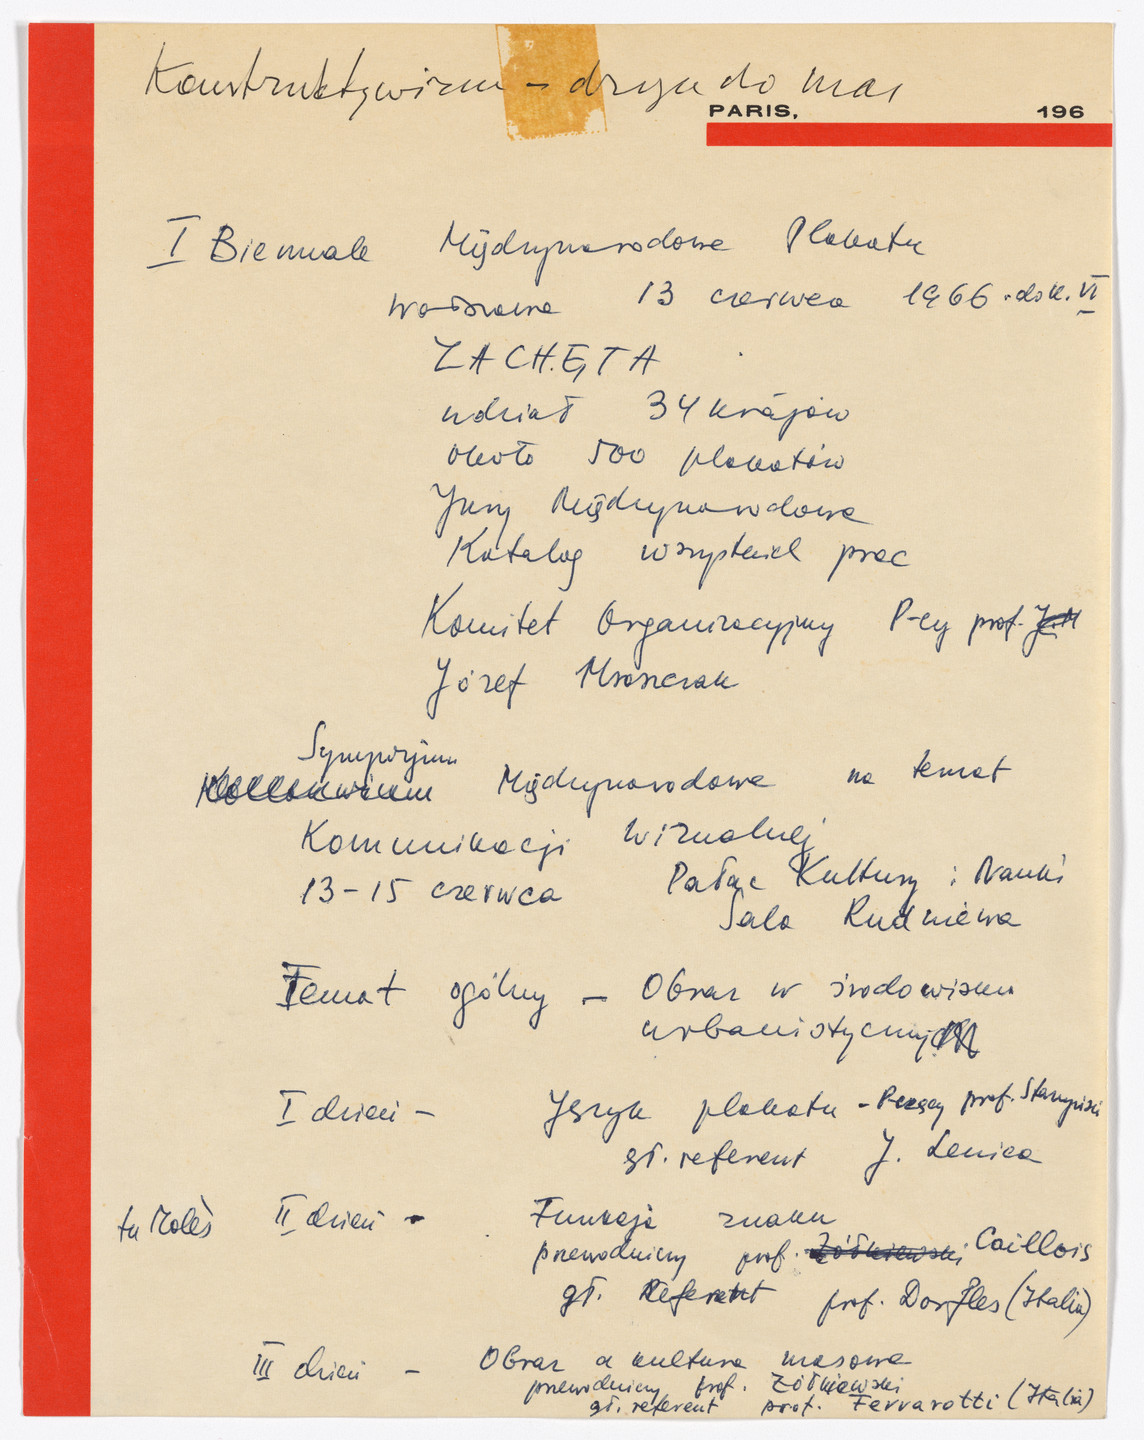 Konstruktywizm – drzu do mas
PARIS, 196
I Biennale Międzynarodowe Plakatu
Warszawa 13 czerwca 1966 - do k. VI
ZACHĘTA
udział 34 krajów
około 500 plakatów
Jury Międzynarodowe
Katalog wszystkich prac
Komitet Organizacyjny P-cy prof.
Józef Mroszczak
Sympozjum
Kollokwium Międzynarodowe na temat
Komunikacji Wizualnej
13-15 czerwca Pałac Kultury i Nauki
Sala Rudniewa
Temat ogólny – Obraz w środowisku
urbanistycznym
I dzień – Język plakatu - P-cy prof. Starzyński
gł. referent J. Lenica
tu Molès II dzień - Funkcja znaku
przewodniczy prof. Żółkiewski Caillois
gł. Referent prof. Dorfles (Italia)
III dzień – Obraz a kultura masowa
przewodniczy prof. Żółkiewski
gł. referent prof. Ferrarotti (Italia)